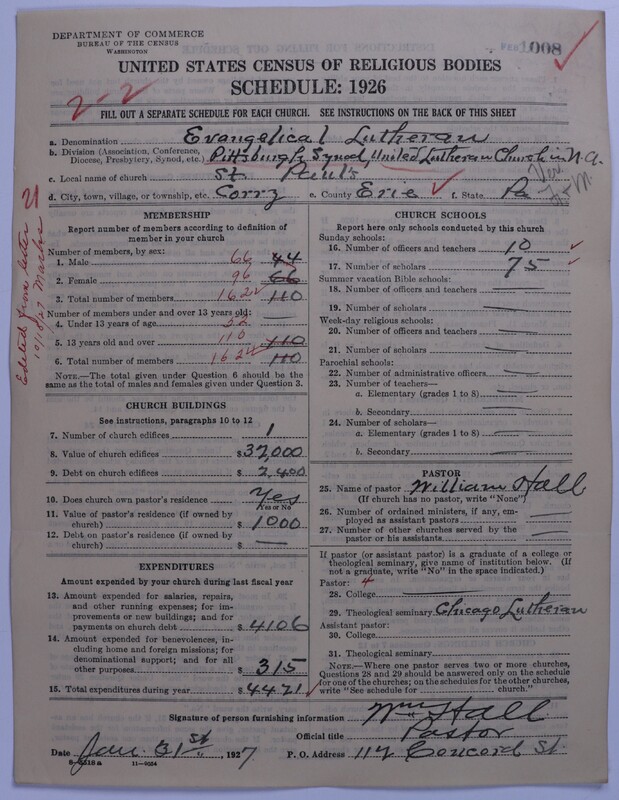 DEPARTMENT OF COMMERCE
BUREAU OF THE CENSUS
WASHINGTON
1008
UNITED STATES CENSUS OF RELIGIOUS BODIES
SCHEDULE: 1926
2-2
FILL OUT A SEPARATE SCHEDULE FOR EACH CHURCH. SEE INSTRUCTIONS ON THE BACK OF THIS SHEET
a. Denomination Evangelical Lutheran
b. Division (Association, Conference, Diocese, Presbytery, Synod, etc.) Pittsburgh Synod, United Lutheran Church in N.A.
c. Local name of church St. Paul's
d. City, town, village, or township, etc. Corry e. County Erie f. State Pa
Edited from letter
MEMBERSHIP
Report number of members according to definition of
member in your church
Number of members, by sex:
1. Male 66 44
2. Female 96 66
3. Total number of members 162 110
Number of members under and over 13 years old:
4. Under 13 years of age 52
5. 13 years old and over 110 110
6. Total number of members 162 110
NOTE.—The total given under Question 6 should be
same as the total of males and females given under Question 3.
CHURCH BUILDINGS
See instructions, paragraphs 10 to 12
7. Number of church edifices 1
8. Value of church edifices $ 37,000
9. Debt on church edifices $ 2,400
10. Does church own pastor's residence Yes
Yes or No
11. Value of pastor's residence (if owned by
church) $ 1000
12. Debt on pastor's residence (if owned by
church) $ —
EXPENDITURES
Amount expended by your church during last fiscal year
13. Amount expended for salaries, repairs,
and other running expenses; for im-
provements or new buildings; and for
payments on church debt $ 4106
14. Amount expended for benevolences, in-
cluding home and foreign missions; for
denominational support; and for all
other purposes $ 315
15. Total expenditures during year $ 4421
CHURCH SCHOOLS
Report here only schools conducted by this church
Sunday schools:
16. Number of officers and teachers 10
17. Number of scholars 75
Summer vacation Bible schools:
18. Number of officers and teachers —
19. Number of scholars —
Week-day religious schools:
20. Number of officers and teachers —
21. Number of scholars —
Parochial schools:
22. Number of administrative officers —
23. Number of teachers—
a. Elementary (grades 1 to 8) —
b. Secondary —
24. Number of scholars—
a. Elementary (grades 1 to 8) —
b. Secondary —
PASTOR
25. Name of pastor William Hall
(If church has no pastor, write "None")
26. Number of ordained ministers, if any, em-
ployed as assistant pastors —
27. Number of other churches served by the
pastor or his assistants —
If pastor (or assistant pastor) is a graduate of a college or
theological seminary, give name of institution below. (If
not a graduate, write "No" in the space indicated.)
Pastor: 4
28. College —
29. Theological seminary Chicago Lutheran
Assistant pastor:
30. College
31. Theological seminary
NOTE.—Where one pastor serves two or more churches,
Questions 28 and 29 should be answered only on the schedule
for one of the churches; on the schedules for the other churches,
write "See schedule for church."
Signature of person furnishing information Wm Hall
Official title Pastor
Date Jan. 31st, 1927 P. O. Address 112 Concord St.
8—5518 a 11—9034